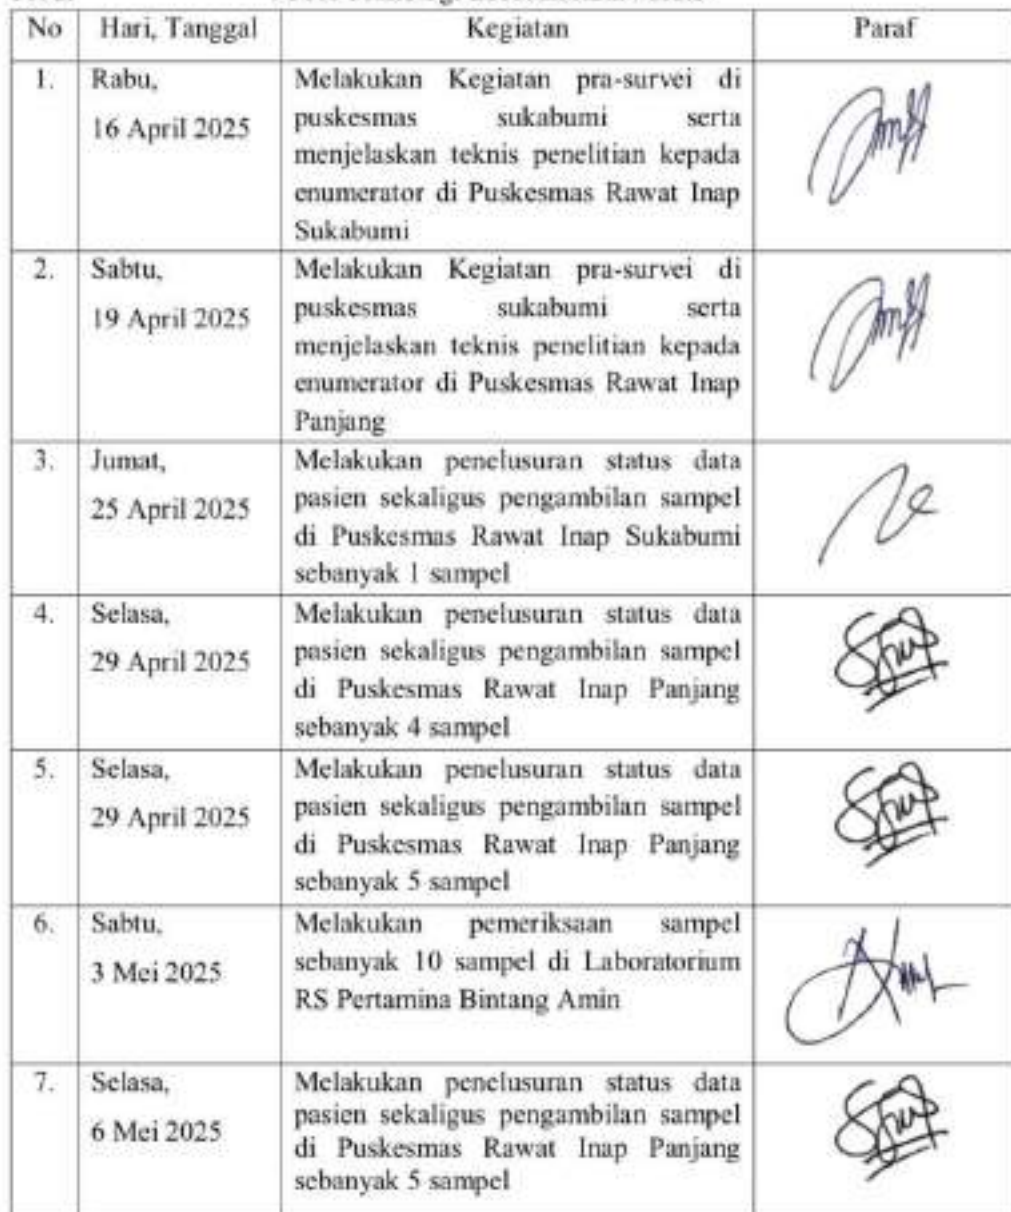 No Hari, Tanggal Kegiatan Paraf
1. Rabu, Melakukan Kegiatan pra-survei di
16 April 2025 puskesmas sukabumi serta
menjelaskan teknis penelitian kepada
enumerator di Puskesmas Rawat Inap
Sukabumi
2. Sabtu, Melakukan Kegiatan pra-survei di
19 April 2025 puskesmas sukabumi serta
menjelaskan teknis penelitian kepada
enumerator di Puskesmas Rawat Inap
Panjang
3. Jumat, Melakukan penelusuran status data
25 April 2025 pasien sekaligus pengambilan sampel
di Puskesmas Rawat Inap Sukabumi
sebanyak 1 sampel
4. Selasa, Melakukan penelusuran status data
29 April 2025 pasien sekaligus pengambilan sampel
di Puskesmas Rawat Inap Panjang
sebanyak 4 sampel
5. Selasa, Melakukan penelusuran status data
29 April 2025 pasien sekaligus pengambilan sampel
di Puskesmas Rawat Inap Panjang
sebanyak 5 sampel
6. Sabtu, Melakukan pemeriksaan sampel
3 Mei 2025 sebanyak 10 sampel di Laboratorium
RS Pertamina Bintang Amin
7. Selasa, Melakukan penelusuran status data
6 Mei 2025 pasien sekaligus pengambilan sampel
di Puskesmas Rawat Inap Panjang
sebanyak 5 sampel